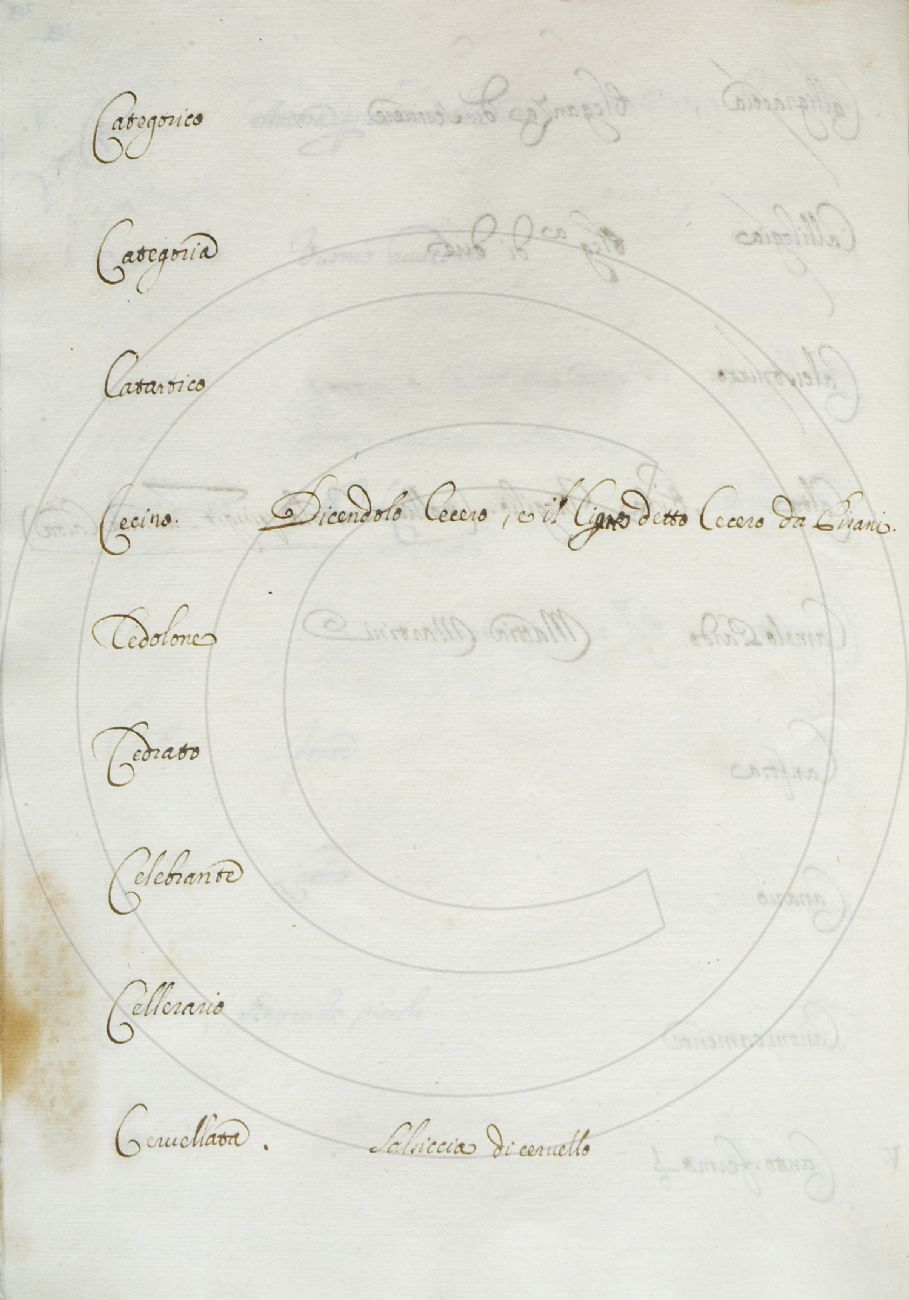 Categorico
Categoria
Catartico
Cecino. Dicendolo Cecero, e il Cigno detto Cecero da Pisani.
Cedolone
Cedrato
Celebrante
Cellerario
Ceruellata. Salsiccia di ceruello